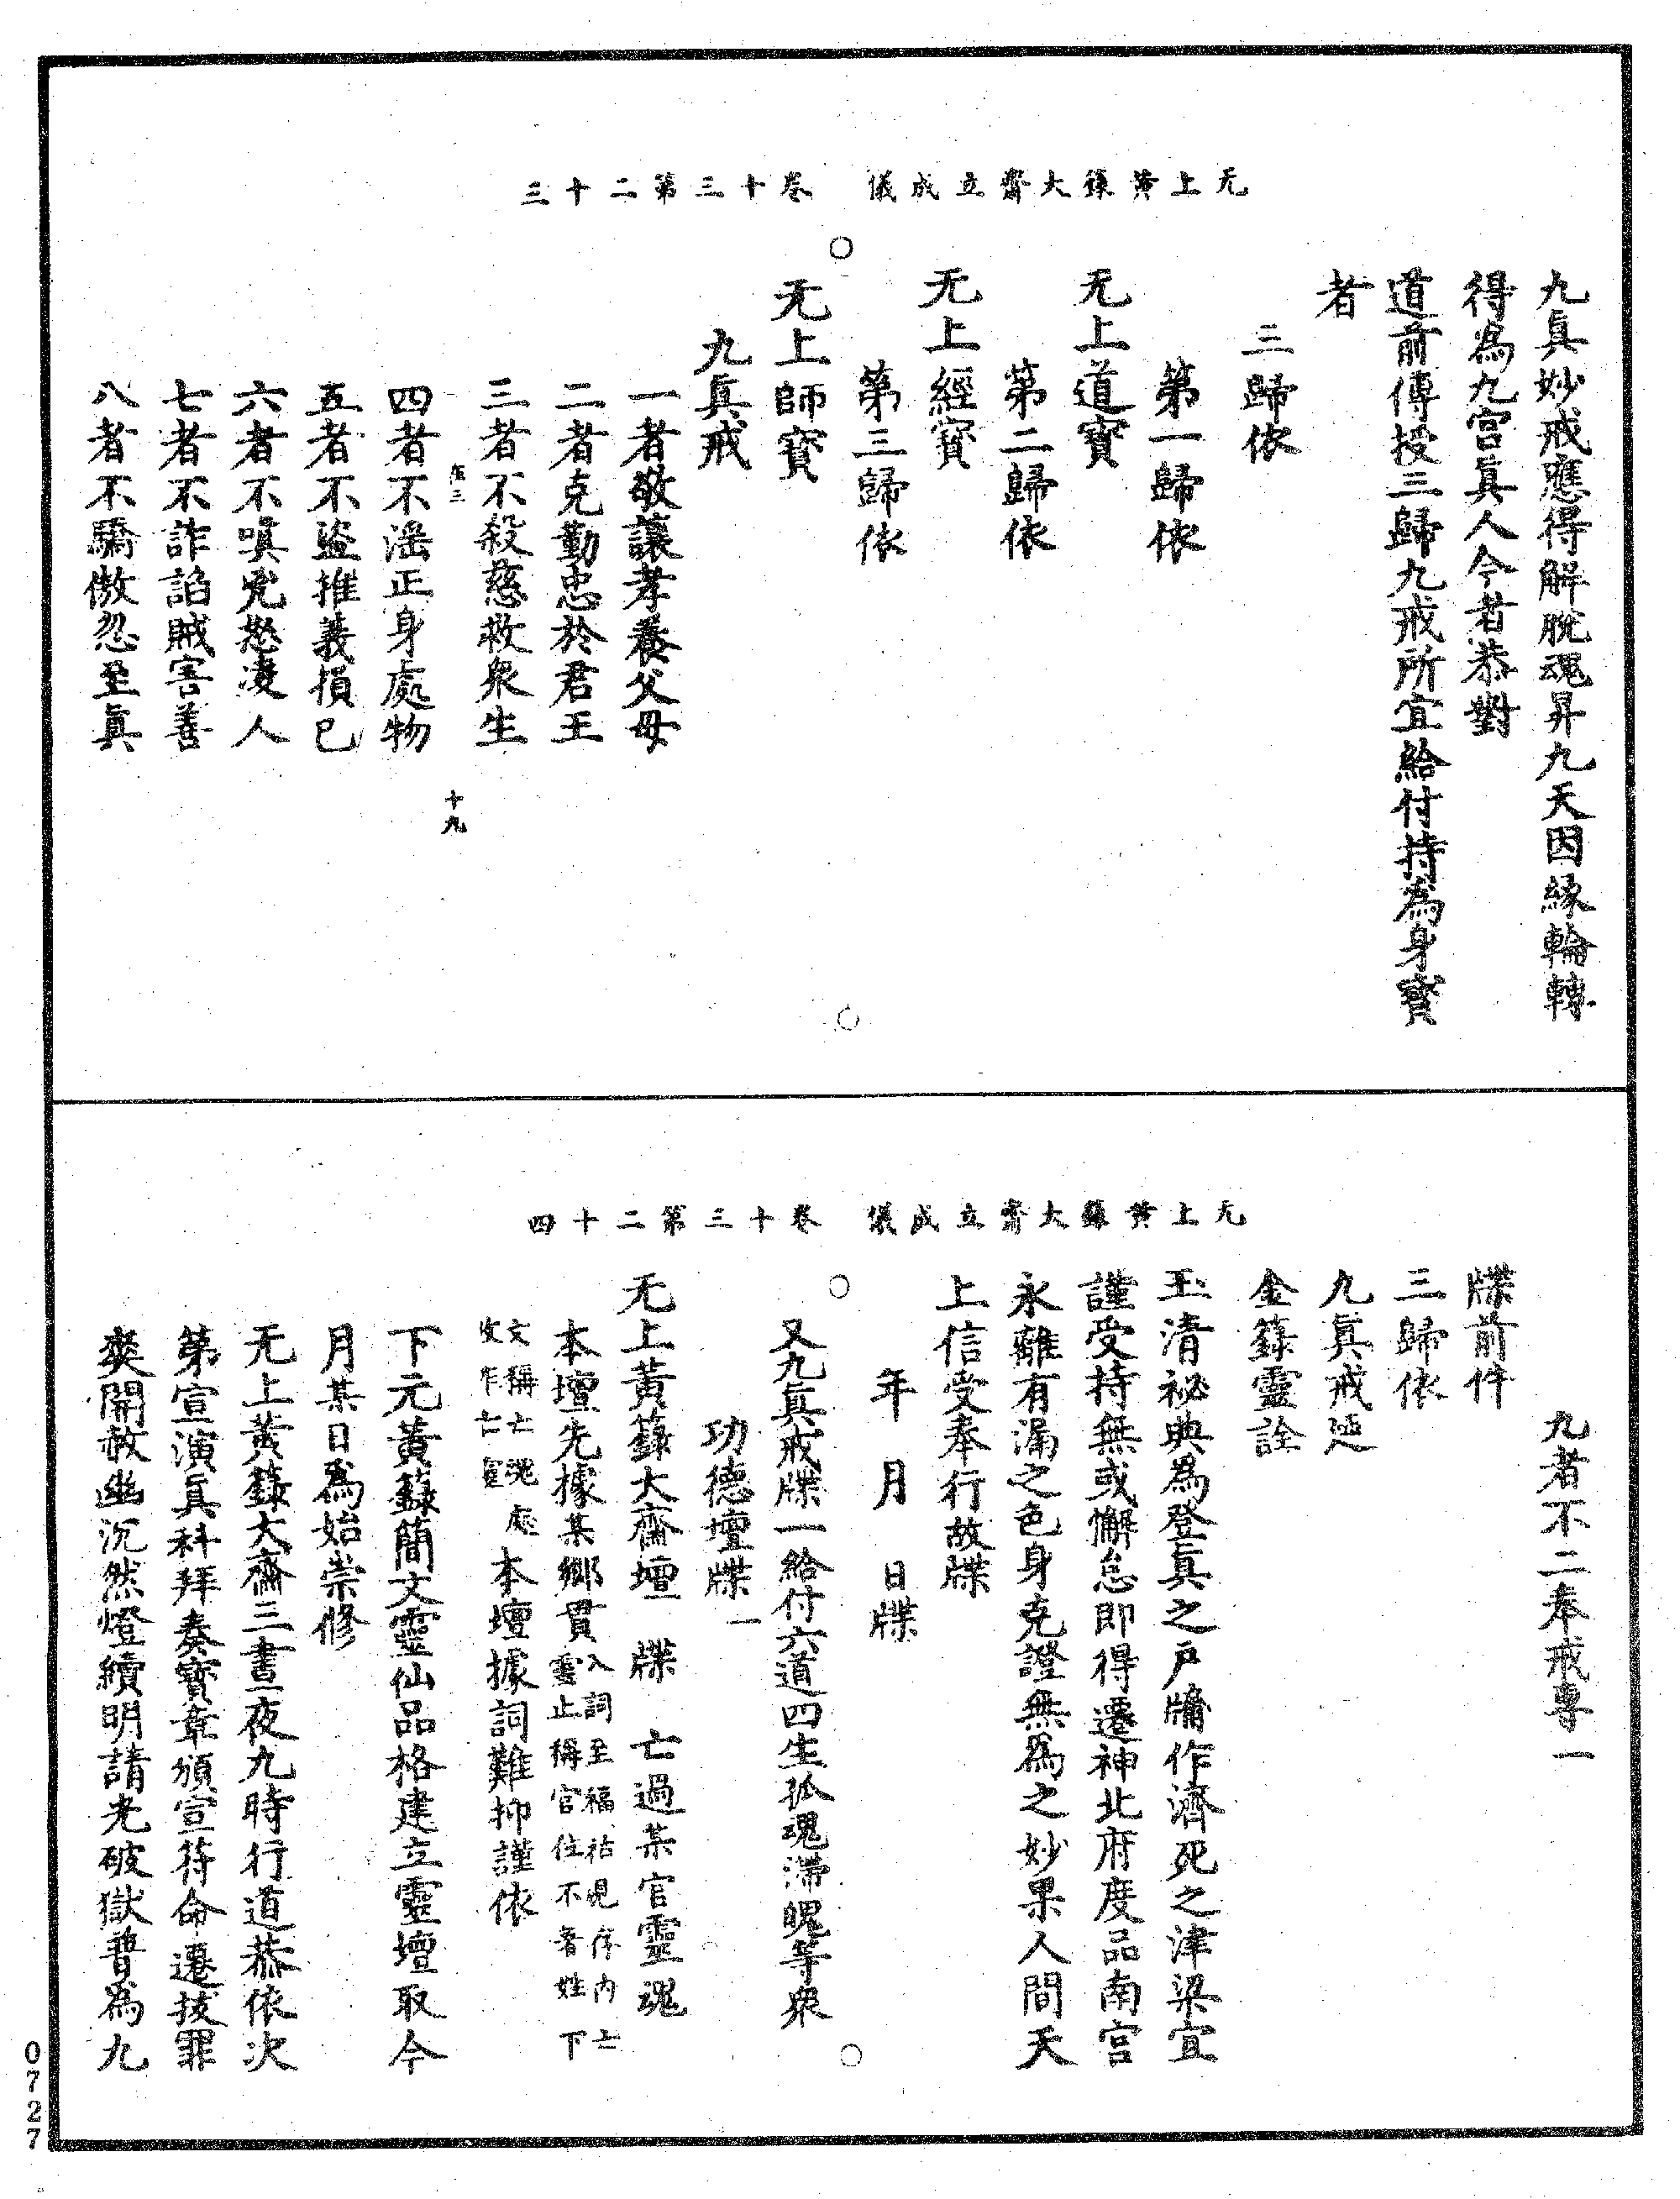 无上黃籙大齋立成儀　卷十三第二十三
九眞妙戒應得解脫魂昇九天因緣輪轉
得爲九宮眞人今者恭對
道前傳授三歸九戒所宜給付持爲身寶
者
三歸依
第一歸依
无上道寶
第二歸依
无上經寶
第三歸依
无上師寶
九眞戒
一者敬讓孝養父母
二者克勤忠於君王
三者不殺慈救衆生
十九
四者不淫正身處物
五者不盜推義損己
六者不嗔兇怒凌人
七者不詐諂賊害善
八者不驕傲忽至眞
无上黃籙大齋立成儀　卷十三第二十四
九者不二奉戒專一
牒前件
三歸依
九眞戒延
金籙靈詮
玉清祕典爲登眞之戶牖作濟死之津梁宜
謹受持無或懈怠即得遷神北府度品南宮
永離有漏之色身克證無爲之妙果人間天
上信受奉行故牒
年　月　日牒
又九眞戒牒一給付六道四生孤魂滯魄等衆
功德壇牒一
无上黃籙大齋壇　牒　亡過某官靈魂
本壇先據某鄉貫入詞至福祜見存內亡靈止稱官位不著姓下
文稱亡魂處改作亡靈本壇據詞難抑謹依
下元黃籙簡文靈仙品格建立靈壇取今
月某日爲始崇修
无上黃籙大齋三晝夜九時行道恭依次
第宣演眞科拜奏寶章頒宣符命遷拔罪
爽開赦幽沉然燈續明請光破獄普爲九
0727